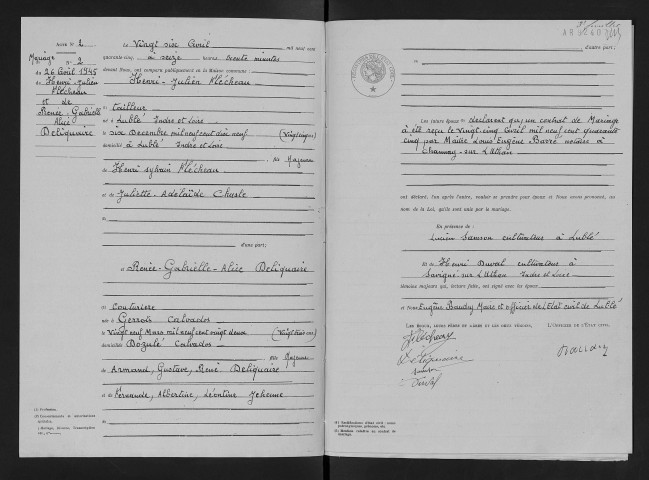 ACTE N° 2
Mariage N° 2
du 26 Avril 1945
de Henri-Julien
Flécheau
et de
Renée-Gabrielle
Alice
Deliquaire
Le Vingt six Avril mil neuf cent
quarante-cinq, à seize heures trente minutes
devant Nous, ont comparu publiquement en la Maison commune :
Henri-Julien Flécheau
tailleur
né à Lublé Indre et Loire
le six Décembre mil neuf cent dix neuf
domicilié à Lublé Indre et Loire
fils Majeur
de Henri Sylvain Flécheau
et de Juliette-Adélaïde Chasle
d'une part;
et Renée-Gabrielle-Alice Deliquaire
Couturière
née à Gerrots Calvados
le Vingt neuf Mars mil neuf cent vingt deux (Vingt trois ans)
domiciliée Dozulé Calvados
fille Majeure
de Armand, Gustave, René Deliquaire
et de Fernande, Albertine, Léontine Jehenne
(1) Profession.
d'autre part;
Les futurs époux déclarent qu'un contrat de Mariage
a été reçu le Vingt-cinq Avril mil neuf cent quarante
cinq par Maître Louis Eugène Barré notaire à
Channay-sur-Lathan
ont déclaré, l'un après l'autre, vouloir se prendre pour époux et Nous avons prononcé, au
nom de la Loi, qu'ils sont unis par le mariage.
En présence de
Lucien Samson cultivateur à Lublé
Et de Henri Duval cultivateur à
Savigné-sur-Lathan Indre et Loire
témoins majeurs qui, lecture faite, ont signé avec les époux
et Nous Eugène Baudry Maire et officier de l'Etat civil de Lublé
L'OFFICIER DE L'ÉTAT CIVIL
Baudry